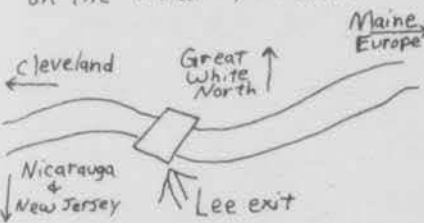 Maine
Europe
Cleveland
Great
White
North
Nicarauga
&
New Jersey
Lee exit